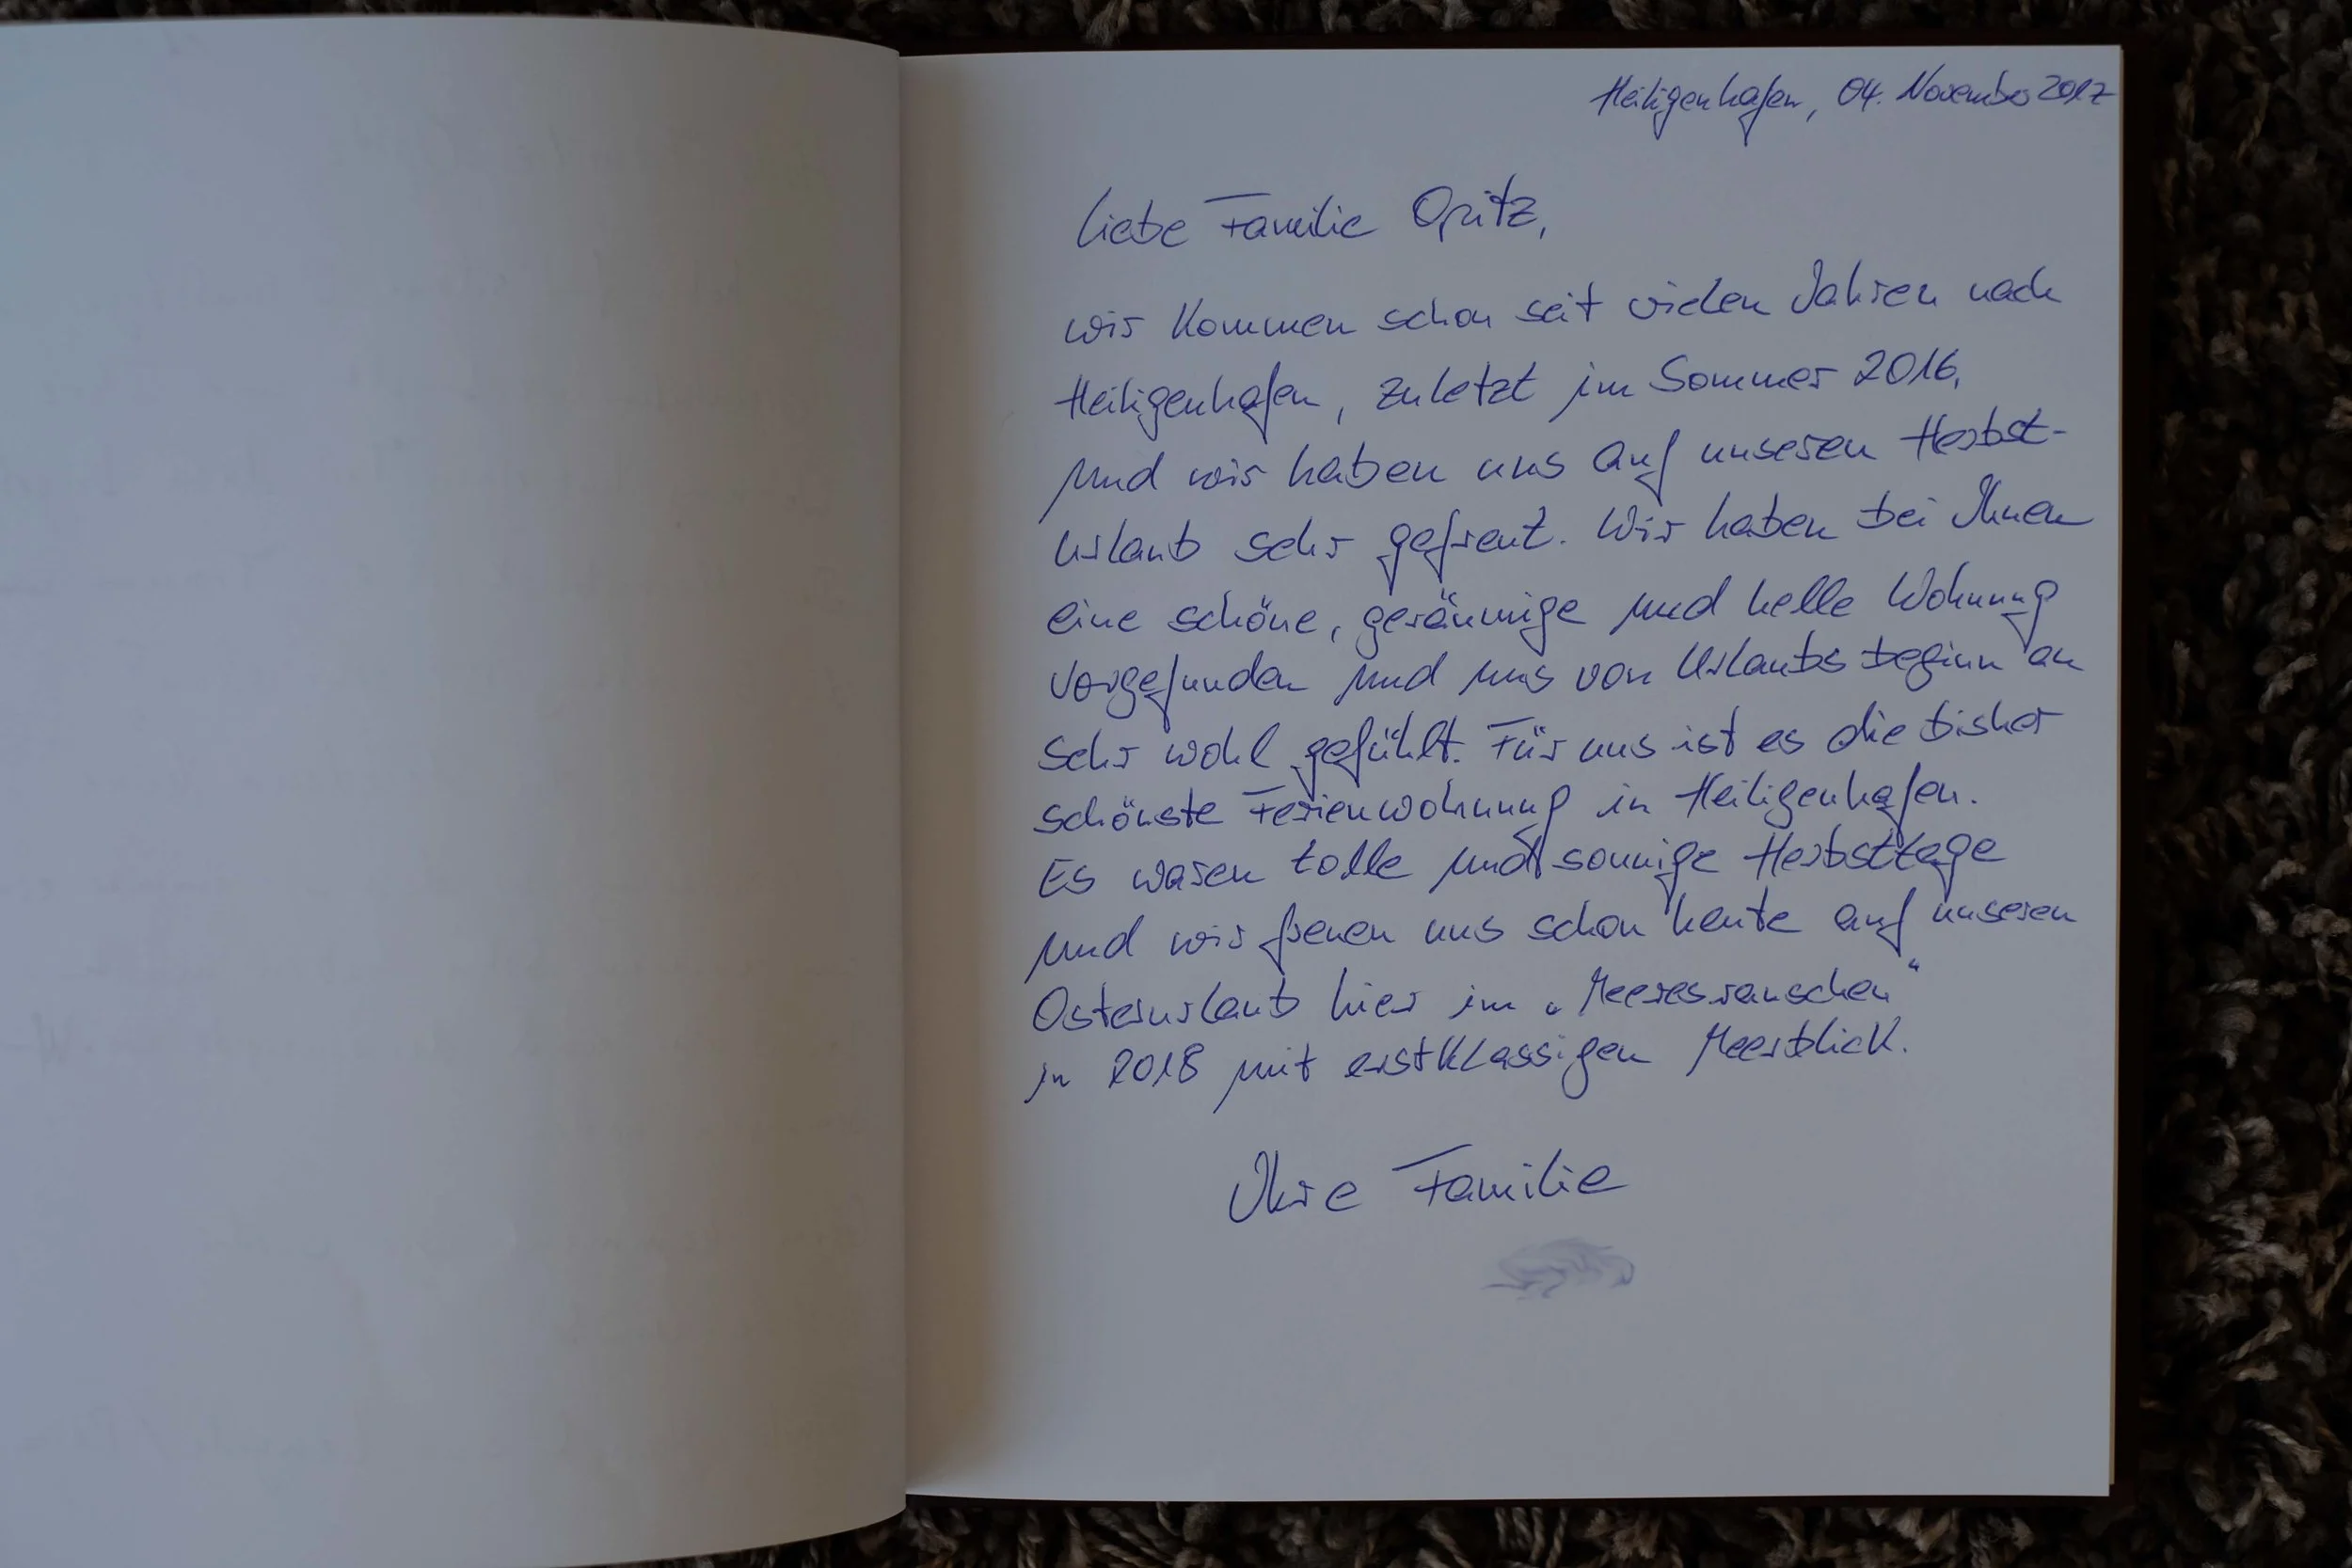 Heiligenhafen, 04. November 2017
Liebe Familie Opitz,
wir kommen schon seit vielen Jahren nach
Heiligenhafen, zuletzt im Sommer 2016,
und wir haben uns auf unseren Herbst-
urlaub sehr gefreut. Wir haben bei Ihnen
eine schöne, geräumige und helle Wohnung
vorgefunden und uns von Urlaubsbeginn an
sehr wohl gefühlt. Für uns ist es die bisher
schönste Ferienwohnung in Heiligenhafen.
Es waren tolle und sonnige Herbsttage
und wir freuen uns schon heute auf unseren
Osterurlaub hier im „Meeresrauschen“
in 2018 mit erstklassigen Meerblick.
Ihre Familie